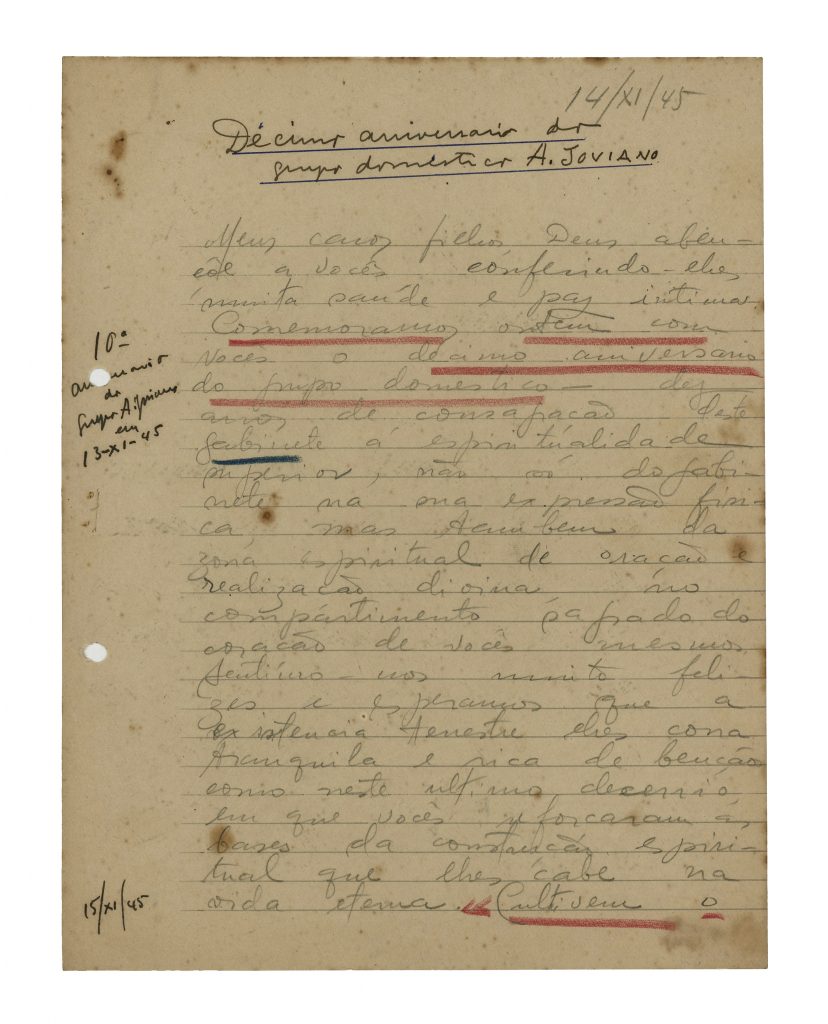 14/XI/45
Décimo aniversario do
grupo doméstico A. JOVIANO
Meus caros filhos Deus aben-
çôe a vocês conferindo-lhes
muita saúde e paz intima.
Comemoramos ontem com
vocês o decimo aniversario
do grupo domestico — dez
anos de consagração deste
gabinete á espiritúalidade
superior, não só do gabi-
nete na sua expressão fisi-
ca, mas tambem da
zona espiritual de oração e
realização divina no
compartimento sagrado do
coração de vocês mesmos.
Sentimo-nos muito feli-
zes e esperamos que a
existencia terrestre lhes corra
tranquila e rica de bençãos
como neste ultimo decenio
em que vocês reforçaram ás
bases da construção espiri-
tual que lhes cabe na
vida eterna. Cultivem o
10º
aniversario
do
grupo A. Joviano
em
13-XI-45
15/XI/45